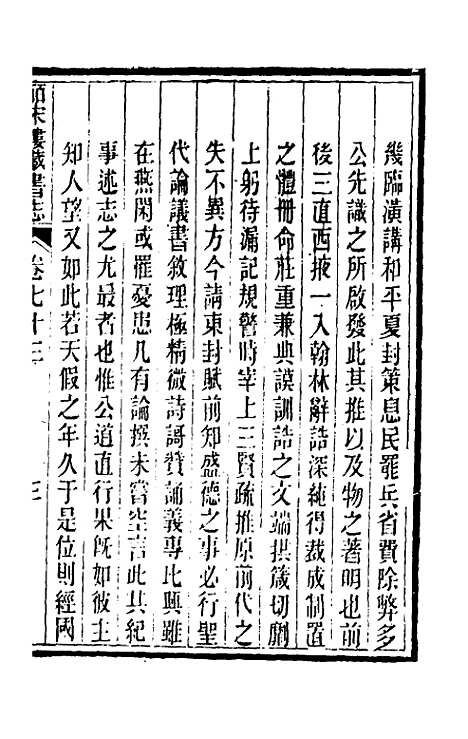 幾臨潢講和平夏封策息民罷兵省費除弊多
公先識之所啟發此其推以及物之著明也前
後三直西掖一入翰林辭誥深純得裁成制置
之體冊命莊重兼典謨訓誥之文端拱箴切劘
上躬待漏記規警時宰上三賢疏推原前代之
失不異方今請東封賦前知盛德之事必行聖
代論議書敘理極精微詩謌贊誦義專比興雖
在燕閑或罹憂患凡有論撰未嘗空言此其紀
事述志之尤最者也惟公道直行果旣如彼主
知人望又如此若天假之年久于是位則經國
皕宋樓藏書志 卷七十三 三